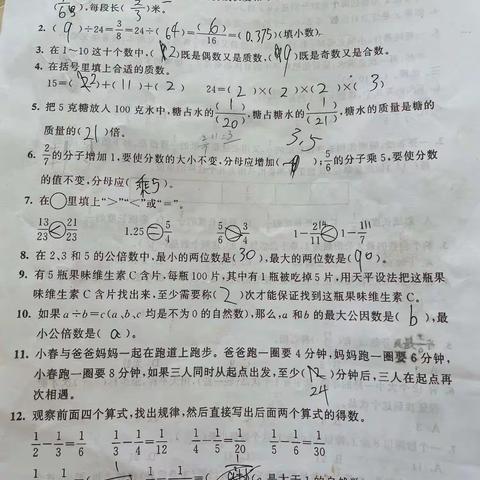 (1/6 8),每段长(2/3)米。
2. (9)÷24=3/8=24÷(64)=(6)/16=(0.375)(填小数)。
3. 在1~10这十个数中,(2)既是偶数又是质数,(9)既是奇数又是合数。
4. 在括号里填上合适的质数。
15=(2)+(11)+(2) 24=(2)×(2)×(2)×(3)
5. 把5克糖放入100克水中,糖占水的(1)/(20),糖占糖水的(1)/(21),糖水的质量是糖的
质量的(21)倍。 3,5
6. 2/7的分子增加1,要使分数的大小不变,分母应增加( );5/6的分子乘5,要使分数
的值不变,分母应(乘5)。
7. 在○里填上“>”“<”或“=”。
13/23<21/23 1.25=5/4 5/6 3/4 1-2/11 1-1/11
8. 在2、3和5的公倍数中,最小的两位数是(30),最大的两位数是(90)。
9. 有5瓶果味维生素C含片,每瓶100片,其中有1瓶被吃掉5片,用天平设法把这瓶果
味维生素C含片找出来,至少需要称(2)次才能保证找到这瓶果味维生素C。
10. 如果a÷b=c(a、b、c均是不为0的自然数),那么,a和b的最大公因数是(b),最
小公倍数是(a)。
11. 小春与爸爸妈妈一起在跑道上跑步。爸爸跑一圈要4分钟,妈妈跑一圈要6分钟,
小春跑一圈要8分钟,如果三人同时从起点出发,至少( )分钟后,三人在起点再
次相遇。 24
12. 观察前面四个算式,找出规律,然后直接写出后面两个算式的得数。
1/2-1/3=1/6 1/3-1/4=1/12 1/4-1/5=1/20 1/5-1/6=1/30